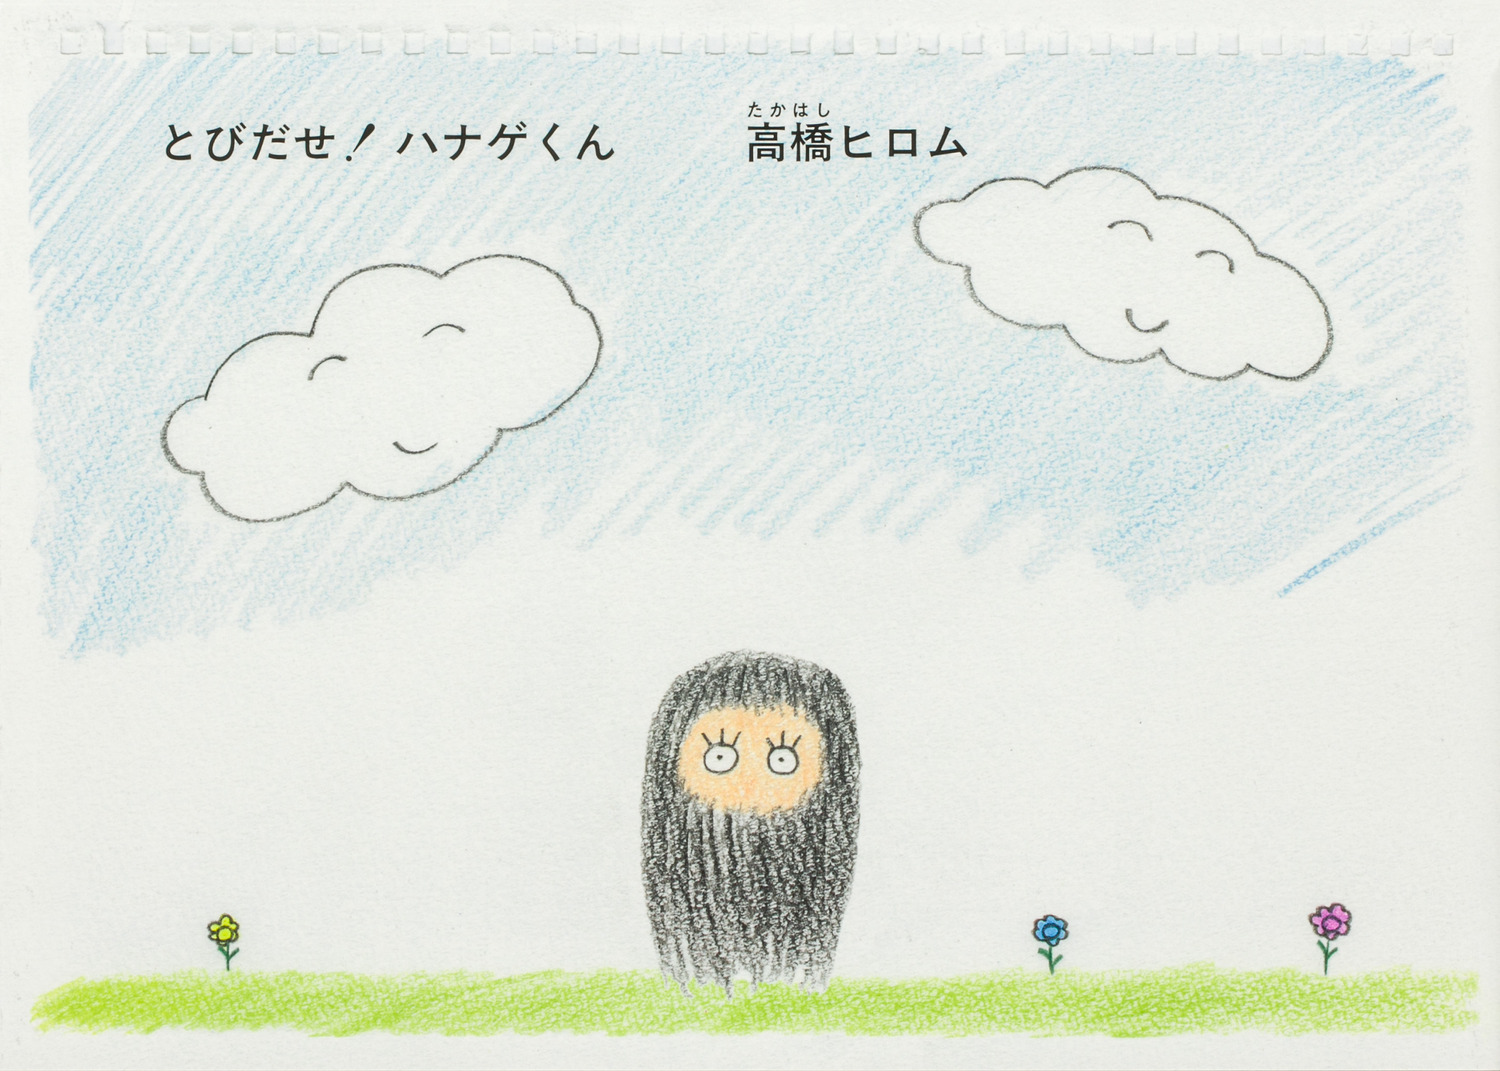 とびだせ！ハナゲくん
たかはし
高橋ヒロム